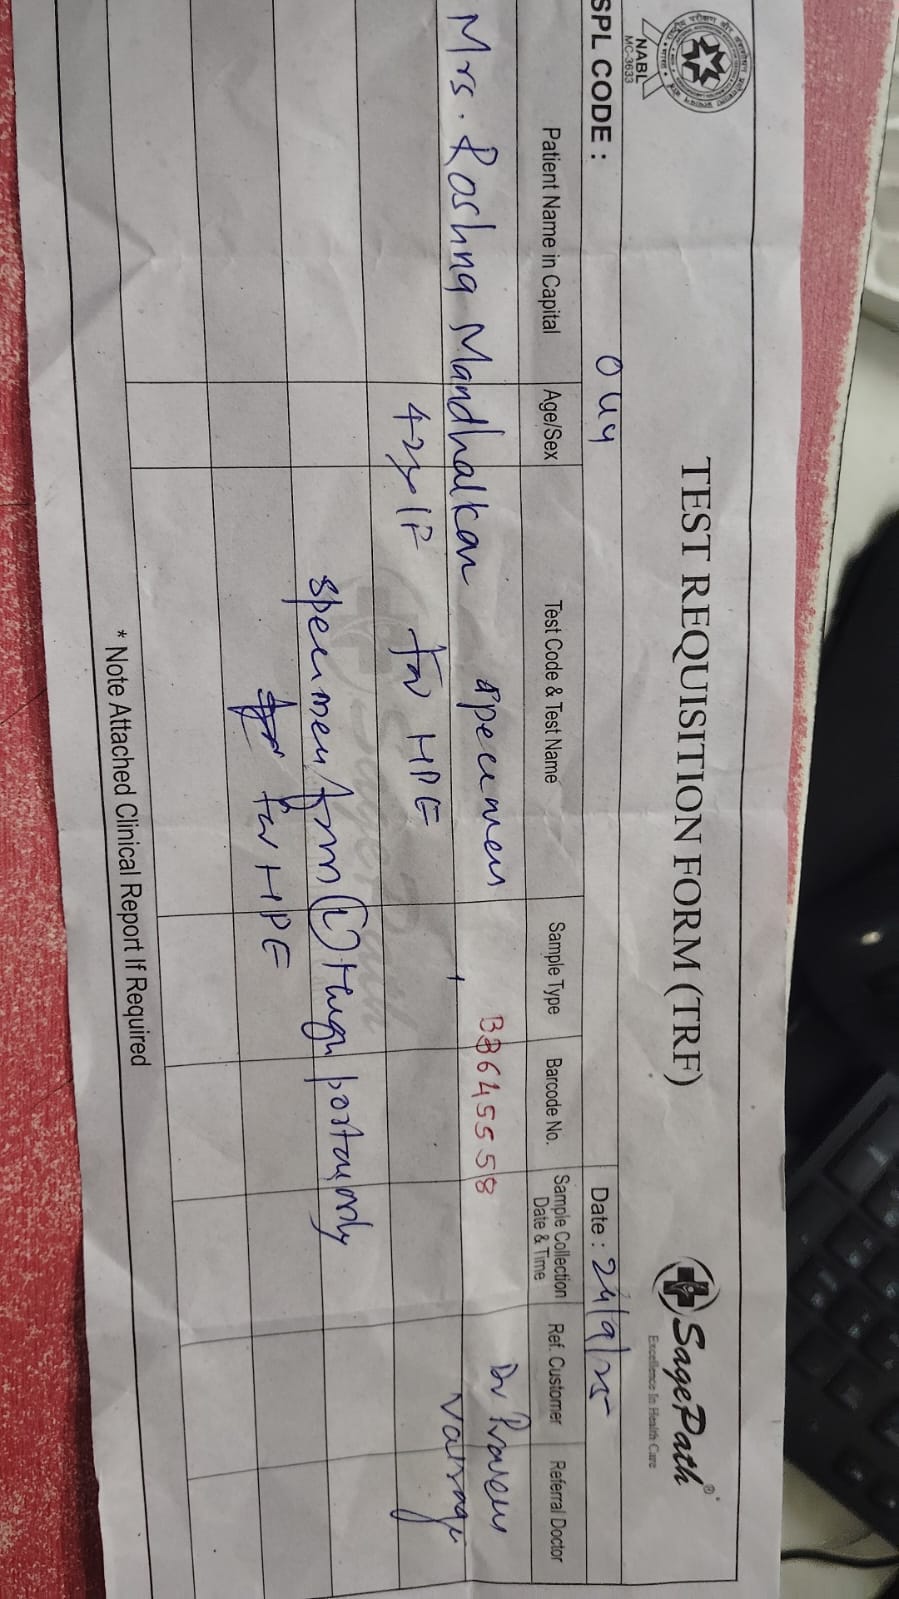 NABL
MC-3633
TEST REQUISITION FORM (TRF)
SagePath®
Excellence In Health Care
SPL CODE : 044
Date : 24/9/25
Patient Name in Capital Age/Sex Test Code & Test Name Sample Type Barcode No. Sample Collection Date & Time Ref. Customer Referral Doctor
Mrs. Roshna Mandhalkar specimen B3645558 Dr Praveen
42y/F for HPE
specimen from (L) thigh posteriorly
for HPE
* Note Attached Clinical Report If Required